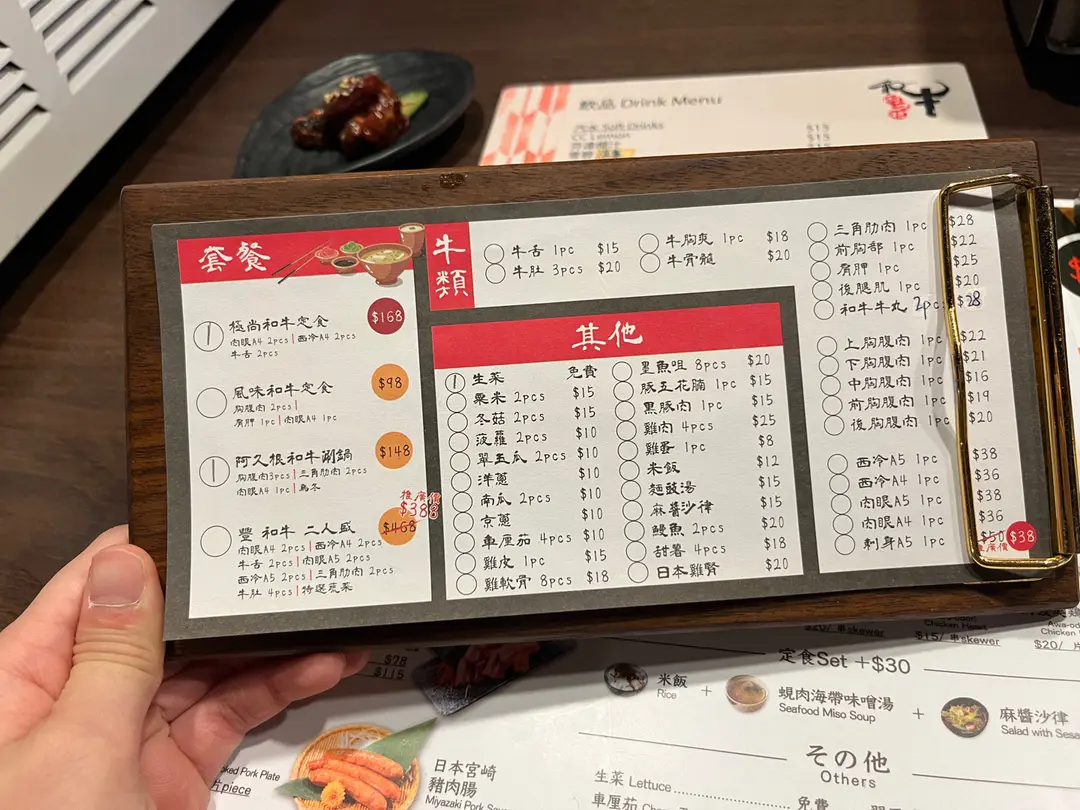 飲品 Drink Menu
汽水 Soft Drinks $15
CC Lemon $15
$15
套餐
1 極尚和牛定食 $168
肉眼A4 2pcs | 西冷A4 2pcs
牛舌 2pcs
風味和牛定食 $98
胸腹肉 2pcs |
肩胛 1pc | 肉眼A4 1pc
1 阿久根和牛涮鍋 $148
胸腹肉3pcs | 三角肋肉 2pcs
肉眼A4 1pc | 烏冬
推廣價
$388
豐 和牛 二人盛 $468
肉眼A4 2pcs | 西冷A4 2pcs
牛舌 2pcs | 肉眼A5 2pcs
西冷A5 2pcs | 三角肋肉 2pcs
牛肚 4pcs | 特選蔬菜
牛類
牛舌 1pc $15
牛肚 3pcs $20
牛胸爽 1pc $18
牛骨髓 $20
三角肋肉 1pc $28
前胸部 1pc $22
肩胛 1pc $25
後腿肌 1pc $20
和牛牛丸 2pcs $28
上胸腹肉 1pc $22
下胸腹肉 1pc $21
中胸腹肉 1pc $16
前胸腹肉 1pc $19
後胸腹肉 1pc $20
西冷A5 1pc $38
西冷A4 1pc $36
肉眼A5 1pc $38
肉眼A4 1pc $36
刺身A5 1pc $50 $38
推廣價
其他
1 生菜 免費
粟米 2pcs $15
冬菇 2pcs $15
菠蘿 2pcs $10
翠玉瓜 2pcs $10
洋蔥 $10
南瓜 2pcs $10
京蔥 $10
車厘茄 4pcs $10
雞皮 1pc $15
雞軟骨 8pcs $18
墨魚咀 8pcs $20
豚五花腩 1pc $15
黑豚肉 1pc $15
雞肉 4pcs $25
雞蛋 1pc $8
米飯 $12
麵豉湯 $15
麻醬沙律 $15
鰻魚 2pcs $20
甜薯 4pcs $18
日本雞腎 $20
Chicken Heart
$20/ 串skewer
$15/ 串skewer
Chicken
$20/
$78
$115
定食Set +$30
米飯
Rice
+
蜆肉海帶味噌湯
Seafood Miso Soup
+
麻醬沙律
Salad with Sesa
その他
Others
生菜 Lettuce 免費
車厘茄
Pork Plate
片piece
日本宮崎
豬肉腸
Miyazaki Pork